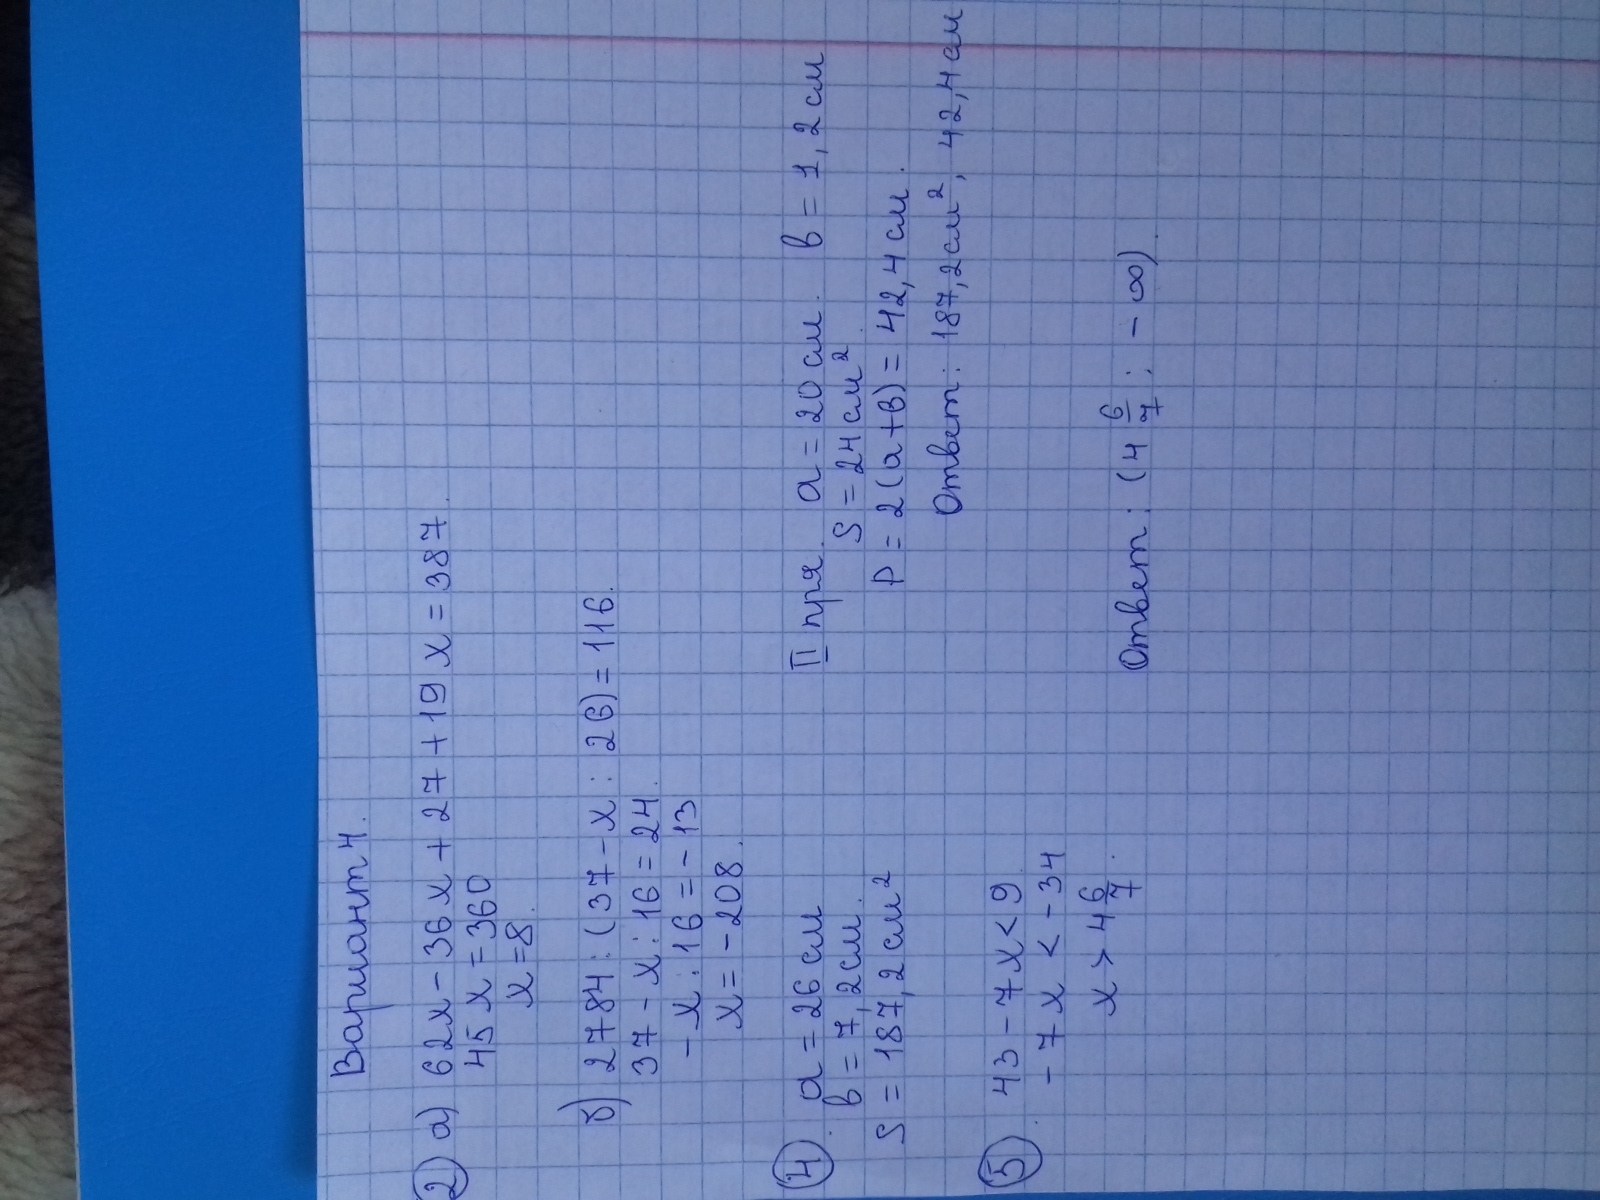 Вариант 4.
2) а) 62x - 36x + 27 + 19x = 387.
45x = 360
x = 8.
б) 2784 : (37 - x : 26) = 116.
37 - x : 16 = 24.
- x : 16 = - 13
x = - 208.
4) a = 26 см
в = 7,2 см.
S = 187,2 см²
II пря. a = 20 см. в = 1,2 см
S = 24 см²
P = 2(a + в) = 42,4 см.
Ответ: 187,2 см², 42,4 см
5) 43 - 7x < 9.
- 7x < - 34
x > 4 6/7.
Ответ: (4 6/7; - ∞).